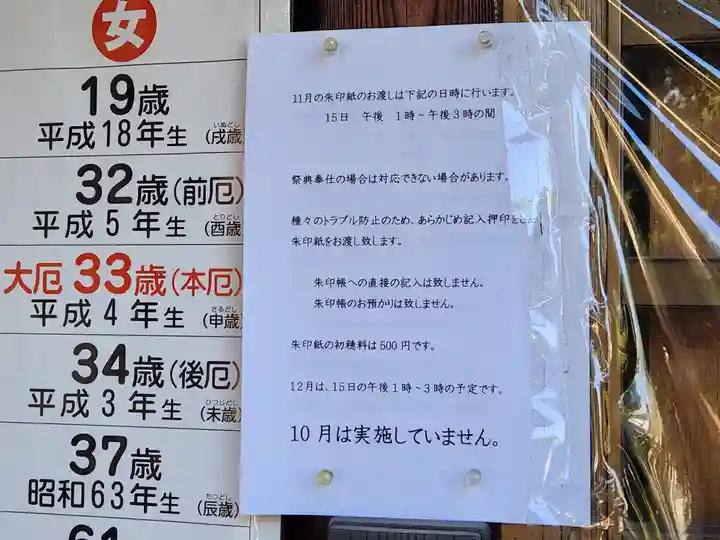 女
19歳
平成18年生 (戌歳)
いぬどし
32歳(前厄)
平成5年生 (酉歳)
とりどし
大厄 33歳(本厄)
平成4年生 (申歳)
さるどし
34歳(後厄)
平成3年生 (未歳)
ひつじどし
37歳
昭和63年生 (辰歳)
たつどし
61
11月の朱印紙のお渡しは下記の日時に行います。
15日 午後 1時~午後3時の間
祭典奉仕の場合は対応できない場合があります。
種々のトラブル防止のため、あらかじめ記入押印をした
朱印紙をお渡し致します。
朱印帳への直接の記入は致しません。
朱印帳のお預かりは致しません。
朱印紙の初穂料は500円です。
12月は、15日の午後1時~3時の予定です。
10月は実施していません。